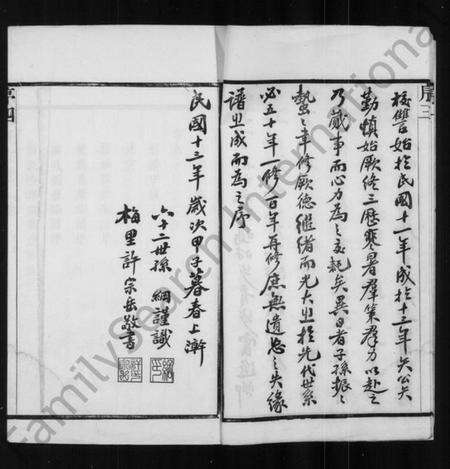 序三
校讐始於民國十一年成於十三年矣公矢
勤慎始厥終三歷寒暑羣策羣力以赴之
乃歲事而心力為之交耗矣異日者子孫振之
蟄之聿修厥德繼緒而光大之於先代世系
必五十年一修百年再修庶無遺忘之失緣
譜之成而為之序
民國十三年歲次甲子暮春上澣
六十二世孫 綱謹識
梅里許宗岳敬書
序四
FamilySearch International